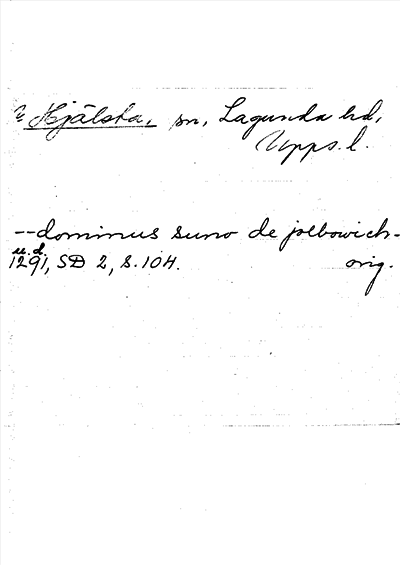 Hjälsta, sn, Lagunda hd,
Upps. l.
--dominus suno de joelbowich-
u. d.
1291, SD 2, s. 104. orig.